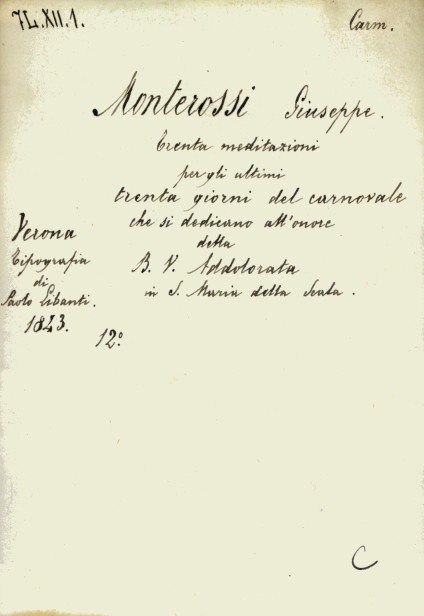 7L.XII.1.
Carm.
Monterossi Giuseppe.
Trenta meditazioni
per gli ultimi
trenta giorni del carnovale
che si dedicano all'onore
della
B. V. Addolorata
in S. Maria della Scala.
Verona
Tipografia
di
Paolo Libanti.
1843.
12º.
C